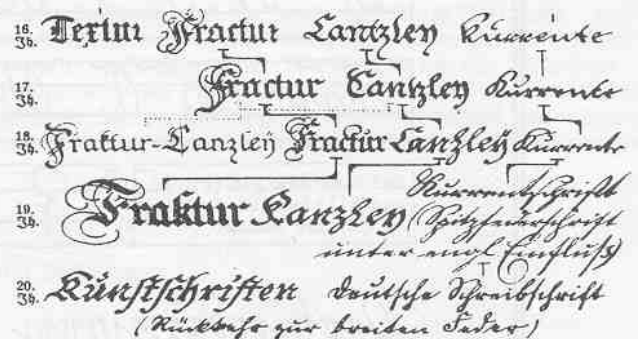 16. Jh. Textur Fractur Cantzley Kurrente
17. Jh. Fractur Cantzley Kurrente
18. Jh. Fraktur-Canzleÿ Fractur Canzleÿ Kurrente
19. Jh. Fraktur Kanzley Kurrentschrift
(Spitzfederschrift
unter engl. Einfluß)
20. Jh. Kunstschriften Deutsche Schreibschrift
(Rückkehr zur breiten Feder)